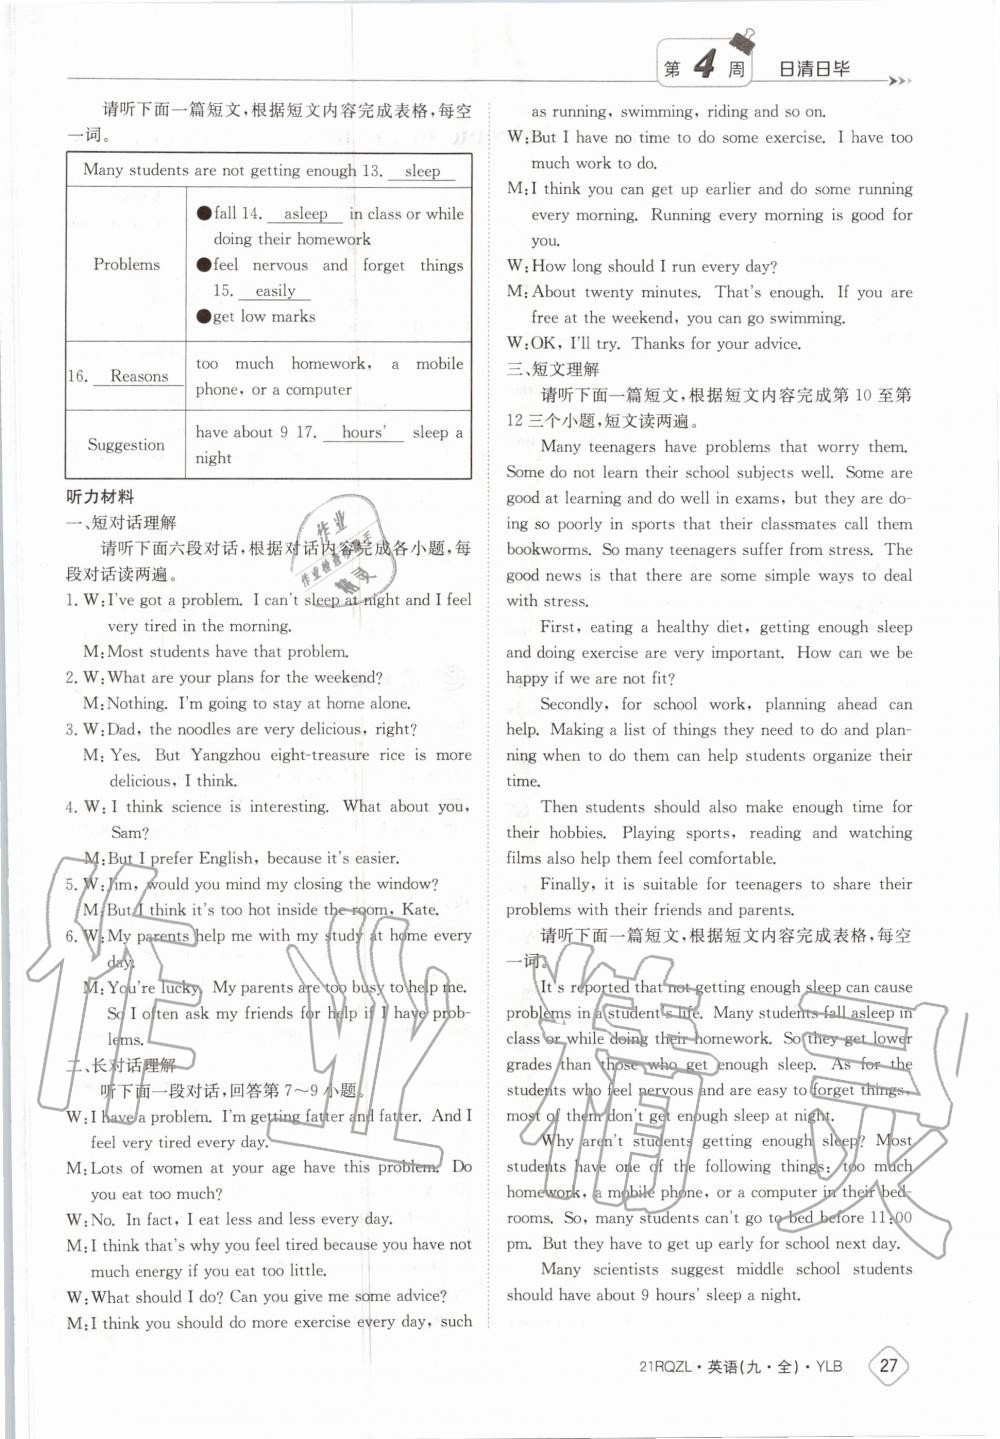 第4周 日清日毕
请听下面一篇短文,根据短文内容完成表格,每空
一词。
Many students are not getting enough 13. sleep
Problems
●fall 14. asleep in class or while
doing their homework
●feel nervous and forget things
15. easily
●get low marks
16. Reasons
too much homework, a mobile
phone, or a computer
Suggestion
have about 9 17. hours' sleep a
night
听力材料
一、短对话理解
请听下面六段对话,根据对话内容完成各小题,每
段对话读两遍。
1. W:I've got a problem. I can't sleep at night and I feel
very tired in the morning.
M:Most students have that problem.
2. W:What are your plans for the weekend?
M:Nothing. I'm going to stay at home alone.
3. W:Dad, the noodles are very delicious, right?
M: Yes. But Yangzhou eight-treasure rice is more
delicious, I think.
4. W: I think science is interesting. What about you,
Sam?
M:But I prefer English, because it's easier.
5. W:Jim, would you mind my closing the window?
M:But I think it's too hot inside the room, Kate.
6. W:My parents help me with my study at home every
day.
M:You're lucky. My parents are too busy to help me.
So I often ask my friends for help if I have prob-
lems.
二、长对话理解
听下面一段对话,回答第7~9小题。
W:I have a problem. I'm getting fatter and fatter. And I
feel very tired every day.
M:Lots of women at your age have this problem. Do
you eat too much?
W:No. In fact, I eat less and less every day.
M:I think that's why you feel tired because you have not
much energy if you eat too little.
W:What should I do? Can you give me some advice?
M:I think you should do more exercise every day, such
as running, swimming, riding and so on.
W:But I have no time to do some exercise. I have too
much work to do.
M:I think you can get up earlier and do some running
every morning. Running every morning is good for
you.
W:How long should I run every day?
M:About twenty minutes. That's enough. If you are
free at the weekend, you can go swimming.
W:OK, I'll try. Thanks for your advice.
三、短文理解
请听下面一篇短文,根据短文内容完成第10至第
12三个小题,短文读两遍。
Many teenagers have problems that worry them.
Some do not learn their school subjects well. Some are
good at learning and do well in exams, but they are do-
ing so poorly in sports that their classmates call them
bookworms. So many teenagers suffer from stress. The
good news is that there are some simple ways to deal
with stress.
First, eating a healthy diet, getting enough sleep
and doing exercise are very important. How can we be
happy if we are not fit?
Secondly, for school work, planning ahead can
help. Making a list of things they need to do and plan-
ning when to do them can help students organize their
time.
Then students should also make enough time for
their hobbies. Playing sports, reading and watching
films also help them feel comfortable.
Finally, it is suitable for teenagers to share their
problems with their friends and parents.
请听下面一篇短文,根据短文内容完成表格,每空
一词。
It's reported that not getting enough sleep can cause
problems in a student's life. Many students fall asleep in
class or while doing their homework. So they get lower
grades than those who get enough sleep. As for the
students who feel nervous and are easy to forget things,
most of them don't get enough sleep at night.
Why aren't students getting enough sleep? Most
students have one of the following things: too much
homework, a mobile phone, or a computer in their bed-
rooms. So, many students can't go to bed before 11:00
pm. But they have to get up early for school next day.
Many scientists suggest middle school students
should have about 9 hours' sleep a night.
21RQZL·英语(九·全)·YLB 27
作业精灵